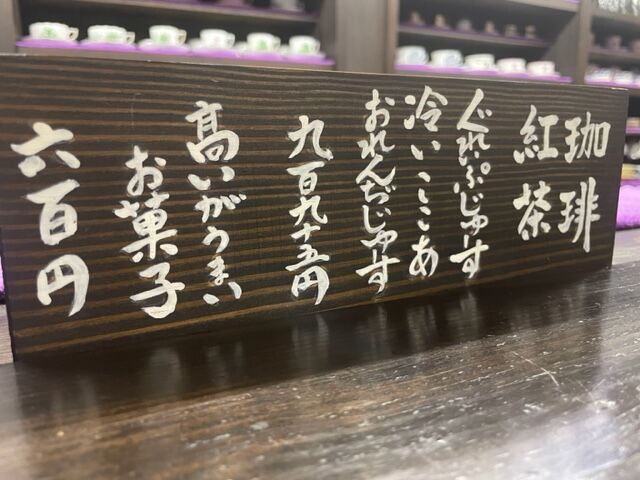 珈琲
紅茶
ぐれぷじゅーす
冷いここあ
おれんぢじゅーす
九百九十五円
高いがうまい
お菓子
六百円